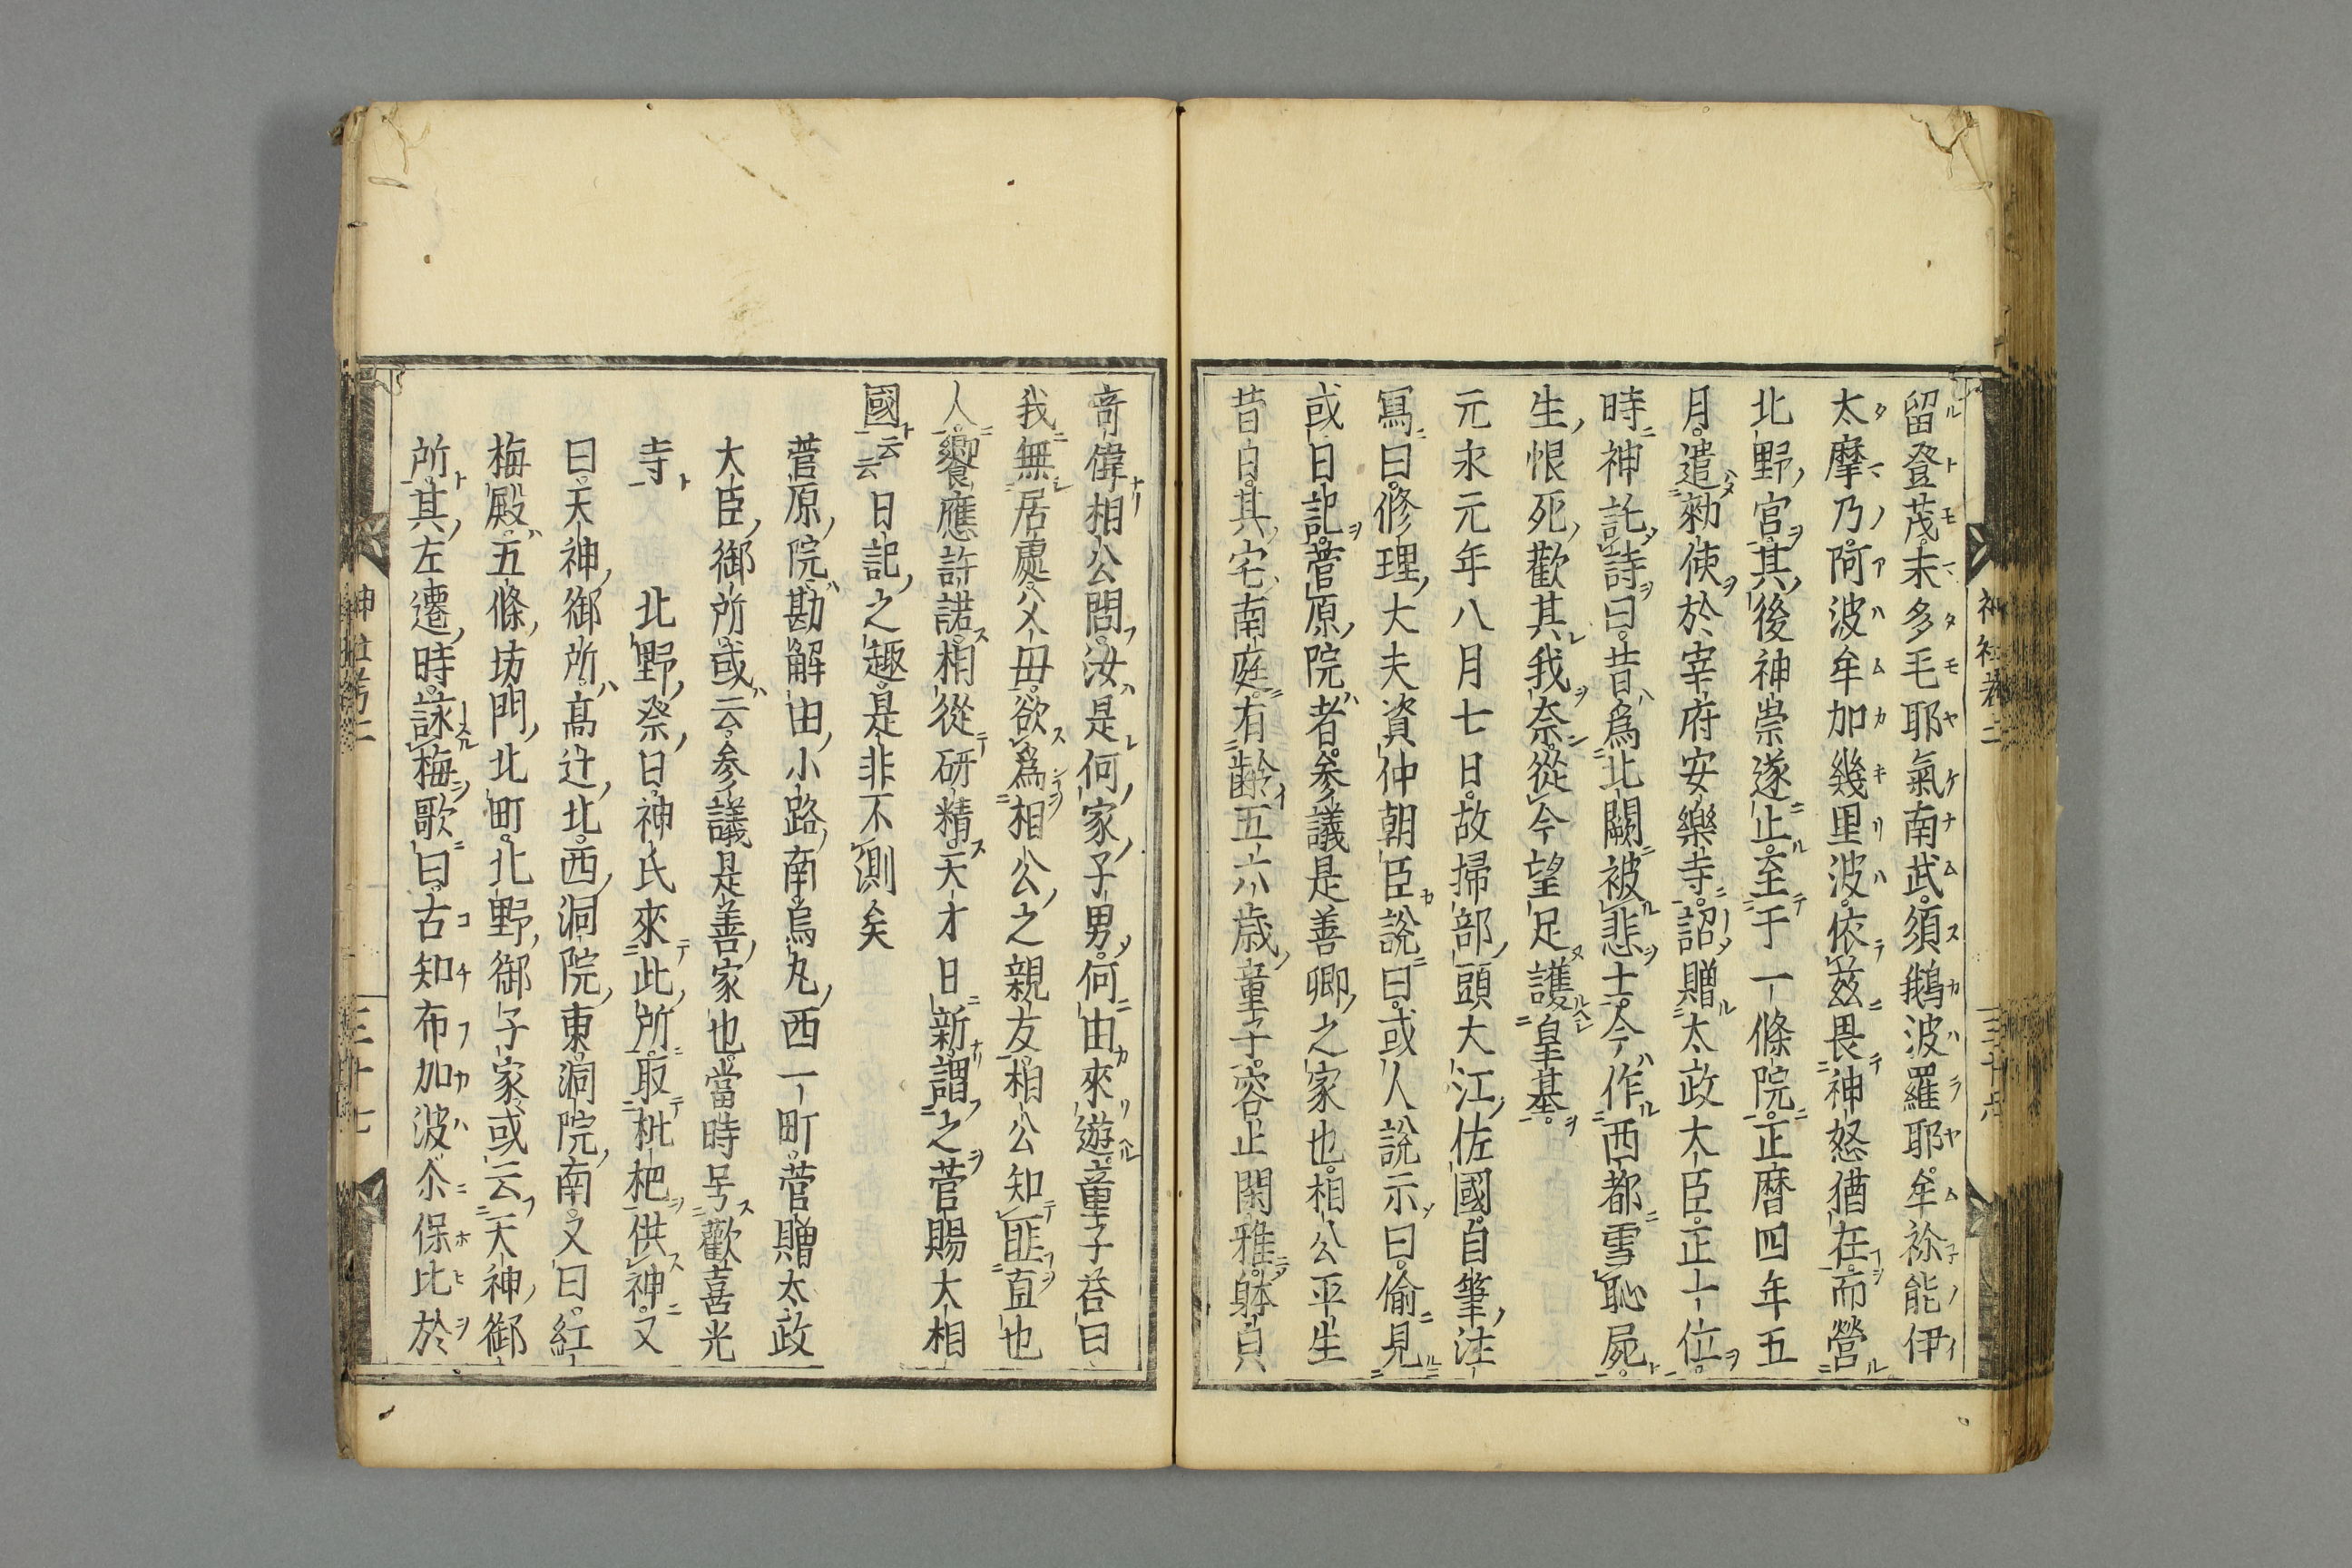 留登茂末多毛耶氣南武須鵝波羅耶牟祢能伊
太摩乃阿波牟加幾里波依茲畏神怒猶在而營
北野宮其後神崇遂止至于一條院正暦四年五
月遣勅使於宰府安樂寺詔贈太政大臣正一位
時神託詩曰昔爲北闕被悲士今作西都雪恥屍
生恨死歡其我奈從今望足護皇基
元永元年八月七日故掃部頭大江佐國自筆注
寫曰修理大夫資仲朝臣說曰或人說示曰偷見
或日記菅原院者参議是善卿之家也相公平生
昔日其宅南庭有齡五六歳童子容止閑雅躰皃
竒偉相公問汝是何家子男何由來遊童子荅曰
我無居處父母欲爲相公之親友相公知匪直也
人饗應許諾相從研精天才日新謂之菅賜大相
國云云日記之趣是非不測矣
菅原院勘解由小路南烏丸西一町菅贈太政
大臣御所或云参議是善家也當時号歡喜光
寺北野祭日神氏來此所取枇杷供神又
曰天神御所髙辻北西洞院東洞院南又曰紅
梅殿五條坊門北町北野御子家或云天神御
所其左遷時詠梅歌曰古知布加波尓保比於
神社考二
三十七